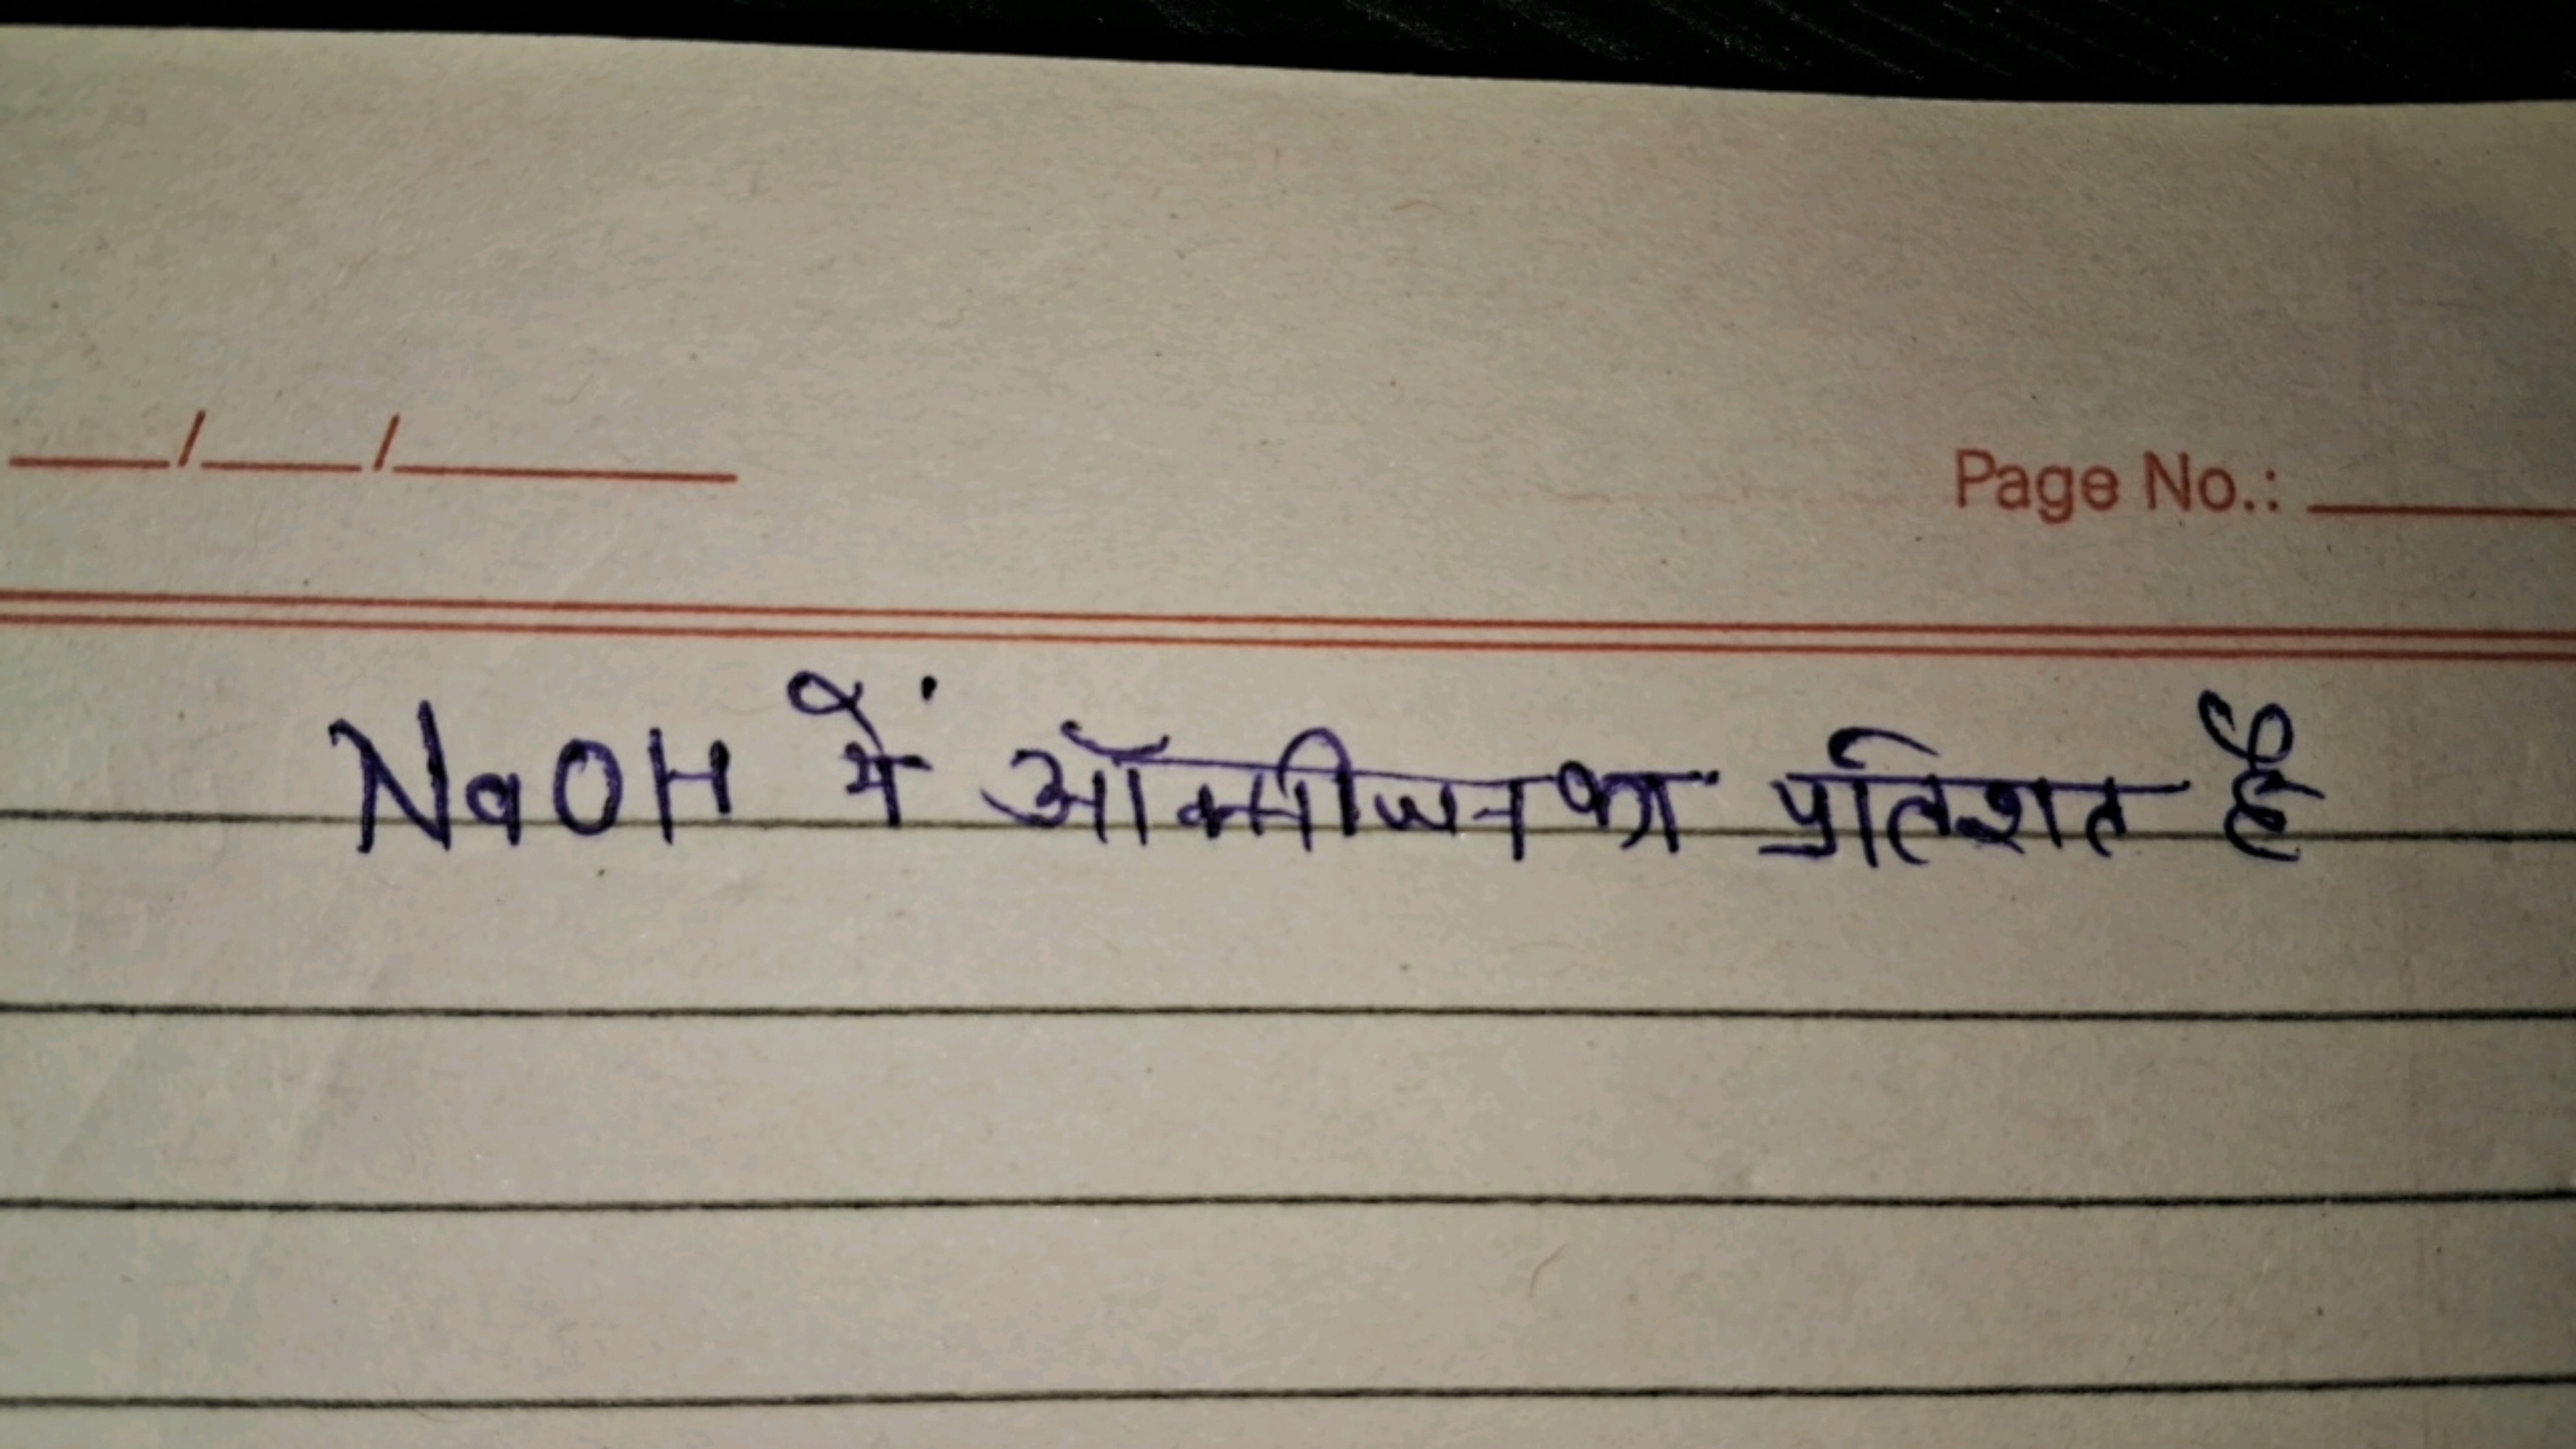 ___/___/______
Page No.: ____
NaOH में ऑक्सीजन का प्रतिशत है